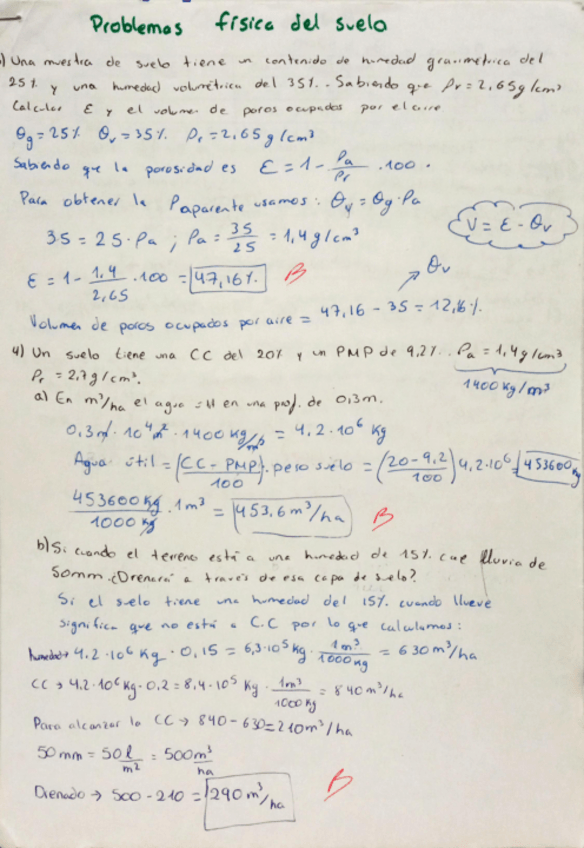 Problemas física del suelo
1) Una muestra de suelo tiene un contenido de humedad gravimétrica del
25% y una humedad volumétrica del 35%. Sabiendo que ρr = 2,65 g/cm³
Calcular ε y el volumen de poros ocupados por el aire.
θg = 25% θv = 35% ρr = 2,65 g/cm³
Sabiendo que la porosidad es ε = 1 - ρa/ρr · 100.
Para obtener la ρaparente usamos: θv = θg · ρa
V = ε - θv
35 = 25 · ρa ; ρa = 35/25 = 1,4 g/cm³
ε = 1 - 1,4/2,65 · 100 = 47,16% B
θv
Volumen de poros ocupados por aire = 47,16 - 35 = 12,16%.
4) Un suelo tiene una CC del 20% y un PMP de 9,2%. ρa = 1,4 g/cm³
ρr = 2,7 g/cm³.
1400 kg/m³
a) En m³/ha el agua útil en una prof. de 0,3m.
0,3 m · 10⁴ m² · 1400 kg/m³ = 4,2 · 10⁶ kg
Agua útil = (CC - PMP/100) · peso suelo = (20 - 9,2/100) 4,2·10⁶ = 453600 kg
453600 kg/1000 kg · 1m³ = 453,6 m³/ha B
b) Si cuando el terreno está a una humedad de 15% cae lluvia de
50mm. ¿Drenará a través de esa capa de suelo?
Si el suelo tiene una humedad del 15% cuando llueve
significa que no está a C.C por lo que calculamos:
humedad → 4,2·10⁶ kg · 0,15 = 6,3·10⁵ kg · 1m³/1000kg = 630 m³/ha
CC → 4,2·10⁶ kg · 0,2 = 8,4·10⁵ kg · 1m³/1000kg = 840 m³/ha
Para alcanzar la CC → 840 - 630 = 210 m³/ha
50 mm = 50 l/m² = 500 m³/ha
Drenado → 500 - 210 = 290 m³/ha B